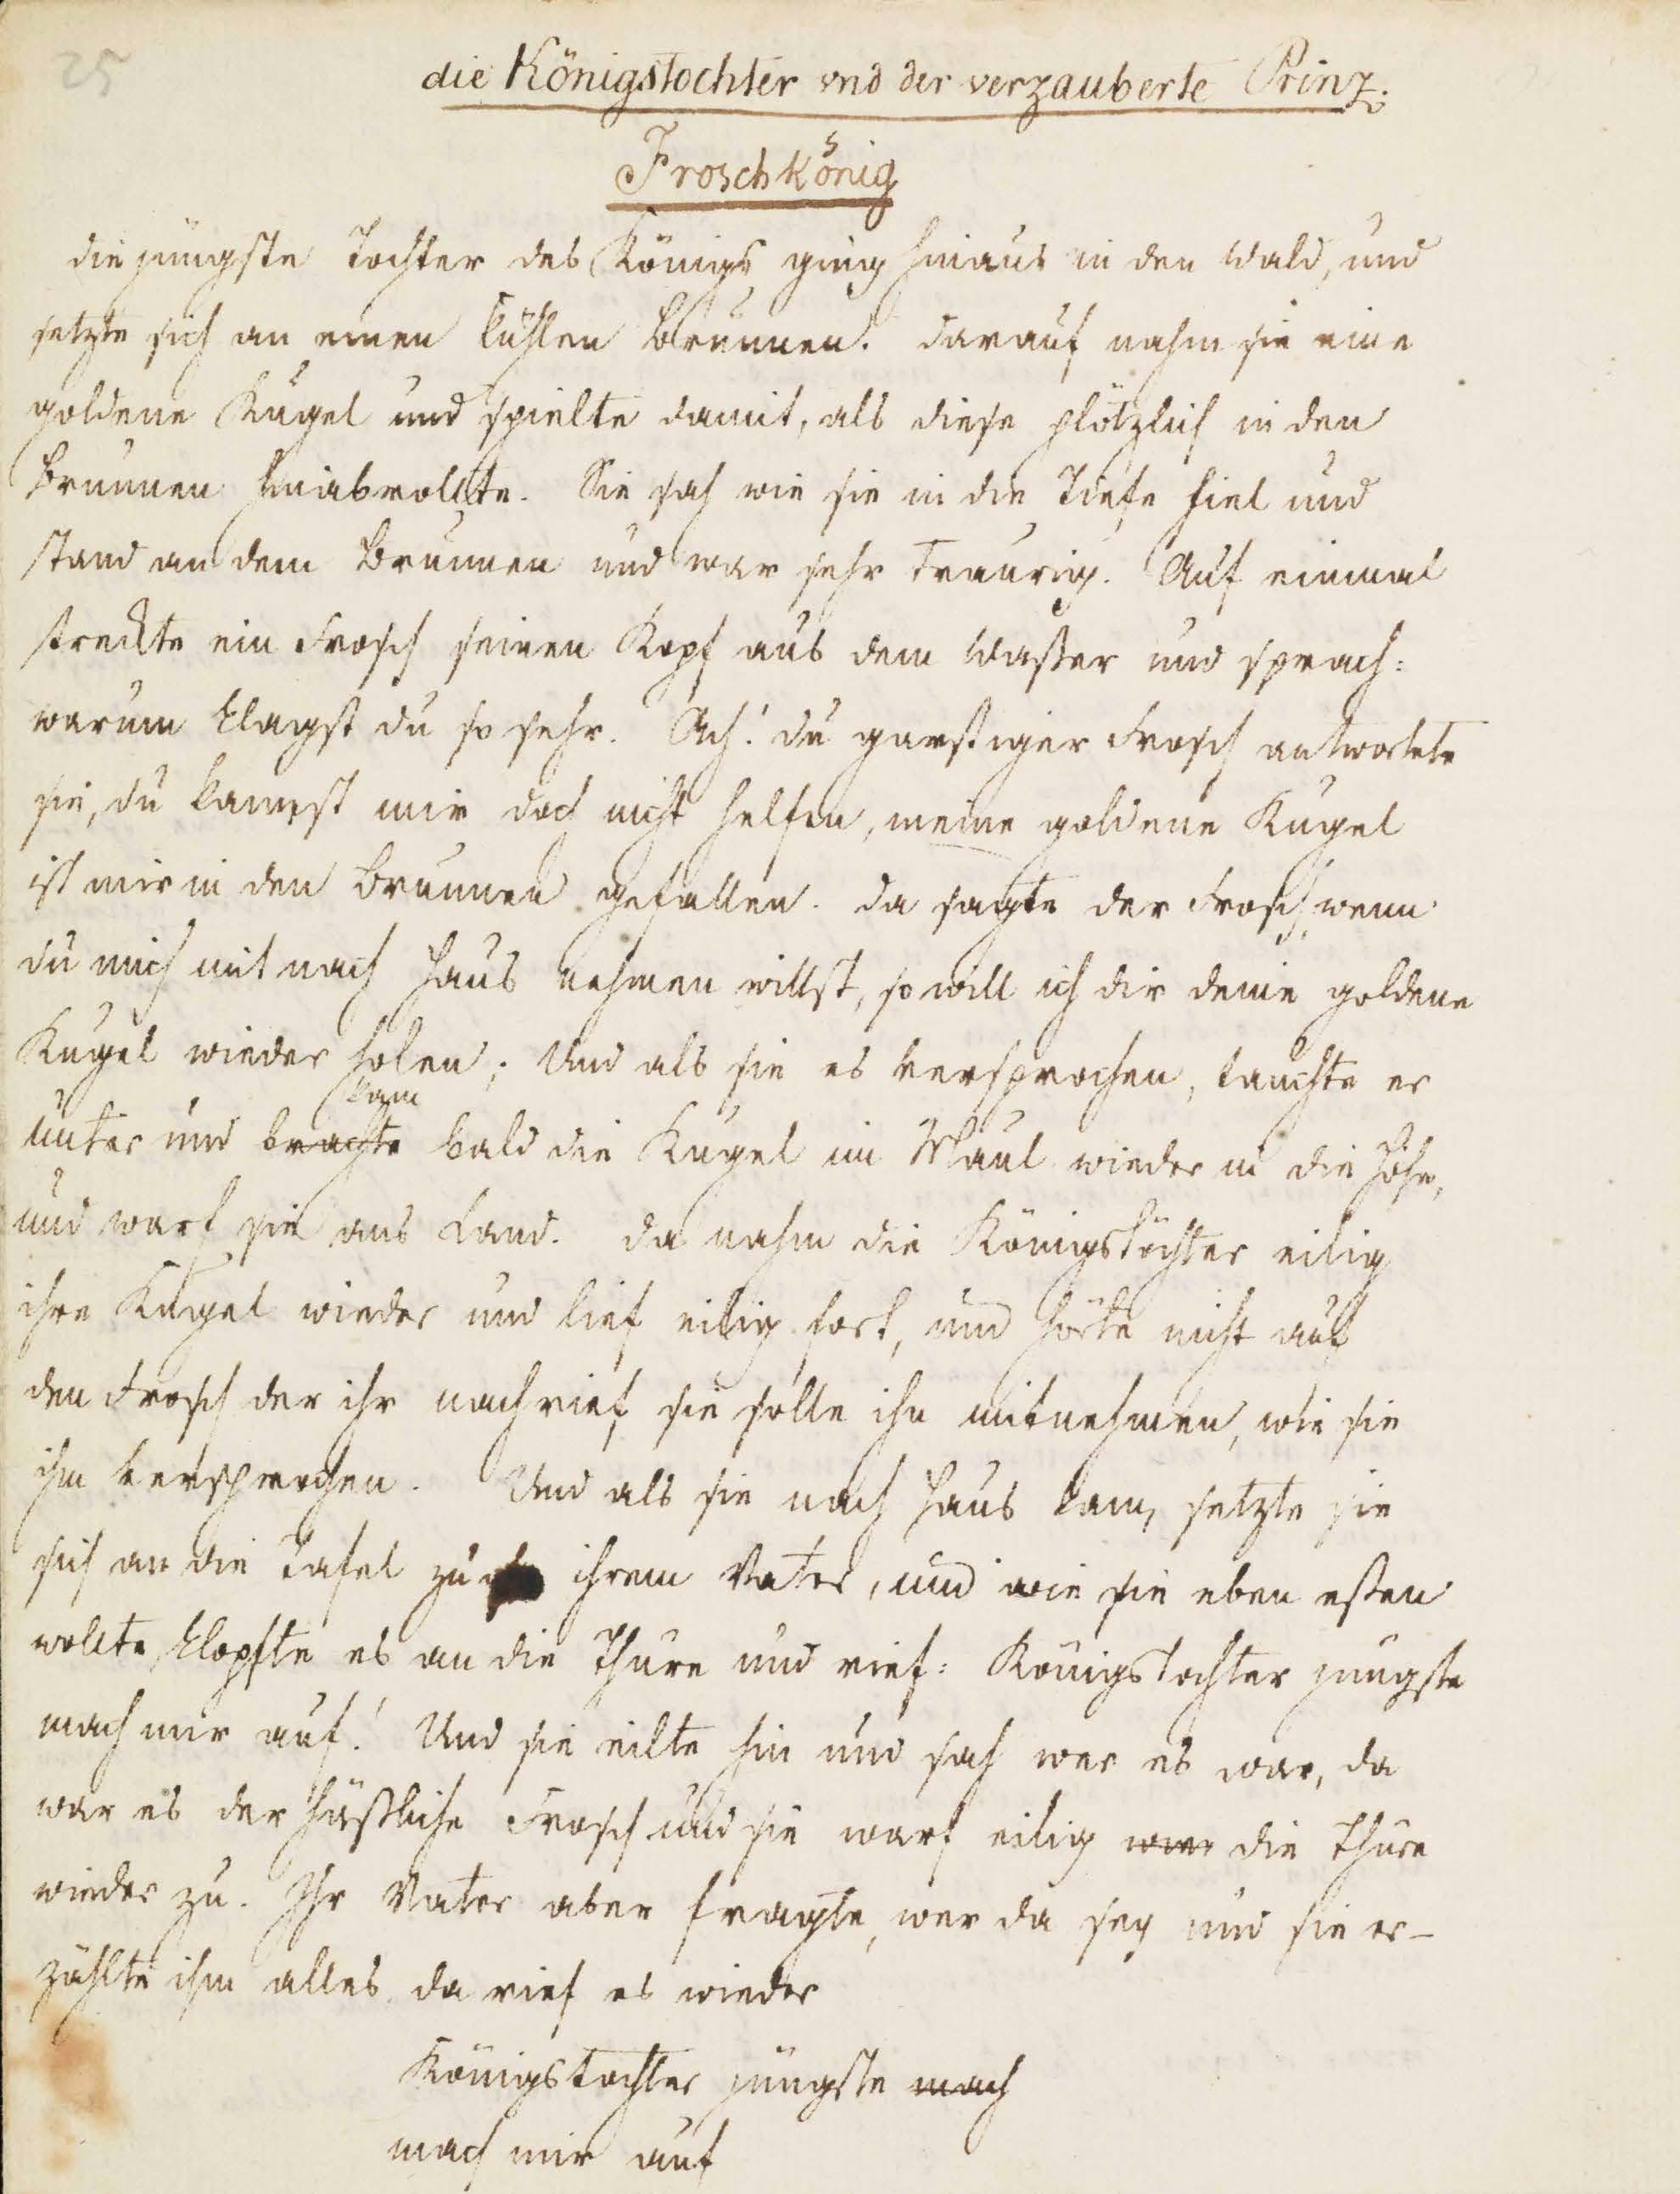 25
die Königstochter und der verzauberte Prinz.
Froschkönig
die jüngste Tochter des Königs ging hinaus in den Wald, und
setzte sich an einen kühlen Brunnen. Darauf nahm sie eine
goldene Kugel und spielte damit, als diese plötzlich in den
Brunnen hinabrollte. Sie sah wie sie in die Tiefe fiel und
stand an dem Brunnen und war sehr traurig. Auf einmal
streckte ein Frosch seinen Kopf aus dem Waßer und sprach:
warum klagst du so sehr. Ach! du garstiger Frosch antwortete
sie, du kannst mir doch nicht helfen, meine goldene Kugel
ist mir in den Brunnen gefallen. da sagte der Frosch wenn
du mich mit nach Haus nehmen willst, so will ich dir deine goldene
Kugel wieder holen; Und als sie es versprochen, tauchte er
kam
unter und brachte bald die Kugel im Maul wieder in die Höhe,
und warf sie ans Land. da nahm die Königstochter eilig
ihre Kugel wieder und lief eilig fort, und hörte nicht auf
den Frosch der ihr nachrief sie solle ihn mitnehmen, wie sie
ihm versprochen. Und als sie nach Haus kam, setzte sie
sich an die Tafel zu ihrem Vater, und wie sie eben eßen
wollte, klopfte es an die Thüre und rief: Königstochter jüngste
mach mir auf! Und sie eilte hin und sah wer es war, da
war es der häßliche Frosch und sie warf eilig die Thüre
wieder zu. Ihr Vater aber fragte, wer da sey und sie er-
zählte ihm alles. da rief es wieder
Königstochter jüngste mach
mach mir auf